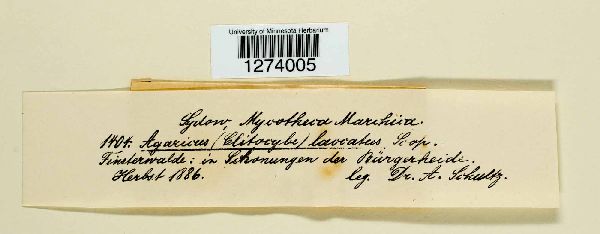 University of Minnesota Herbarium
1274005
Sydow Mycotheca Marchica.
1404. Agaricus (Clitocybe) laccatus, Scop.
Finsterwalde: in Schonungen der Bürgerheide.
Herbst 1886. leg. Dr. A. Schultz.